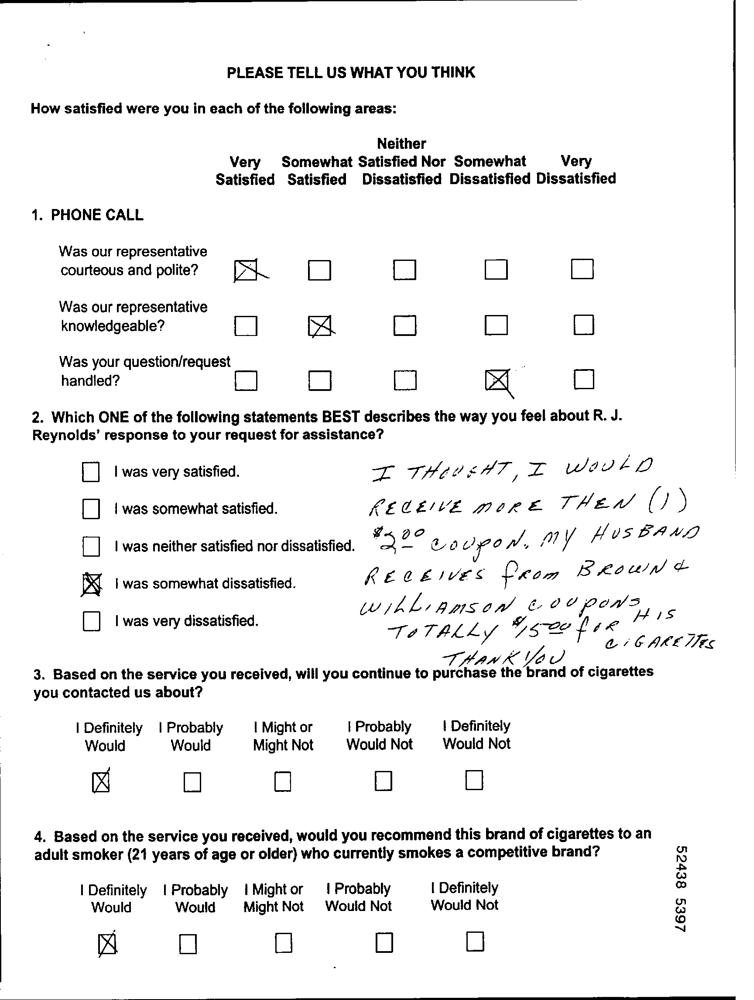 PLEASE TELL US WHAT YOU THINK
How satisfied were you in each of the following areas:
Neither
Very Somewhat Satisfied Nor Somewhat Very
Satisfied Satisfied Dissatisfied Dissatisfied Dissatisfied
1. PHONE CALL
Was our representative
courteous and polite?
Was our representative
knowledgeable?
Was your question/request
handled?
2. Which ONE of the following statements BEST describes the way you feel about R. J.
Reynolds' response to your request for assistance?
I was very satisfied.
I was somewhat satisfied.
I was neither satisfied nor dissatisfied.
I was somewhat dissatisfied.
I was very dissatisfied.
I THOUGHT, I WOULD
RECEIVE MORE THEN (1)
$2.00 COUPON. MY HUSBAND
RECEIVES from BROWN &
WILLIAMSON COUPONS
TOTALLY $15.00 for HIS
CIGARETTES
THANK YOU
3. Based on the service you received, will you continue to purchase the brand of cigarettes
you contacted us about?
I Definitely I Probably I Might or I Probably I Definitely
Would Would Might Not Would Not Would Not
4. Based on the service you received, would you recommend this brand of cigarettes to an
adult smoker (21 years of age or older) who currently smokes a competitive brand?
I Definitely I Probably I Might or I Probably I Definitely
Would Would Might Not Would Not Would Not
52438 5397